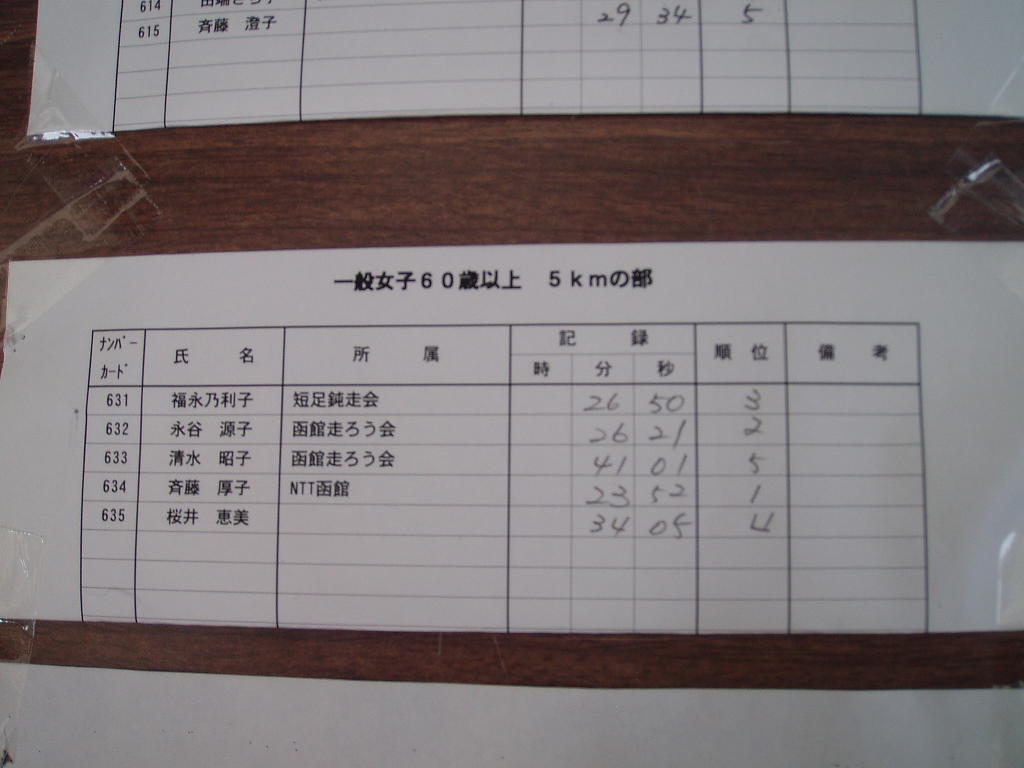 614
615 斉藤 澄子 29 34 5
一般女子60歳以上 5kmの部
ナンバーカード 氏 名 所 属 記 録 順 位 備 考
時 分 秒
631 福永乃利子 短足鈍走会 26 50 3
632 永谷 源子 函館走ろう会 26 21 2
633 清水 昭子 函館走ろう会 41 01 5
634 斉藤 厚子 NTT函館 23 52 1
635 桜井 恵美 34 05 4